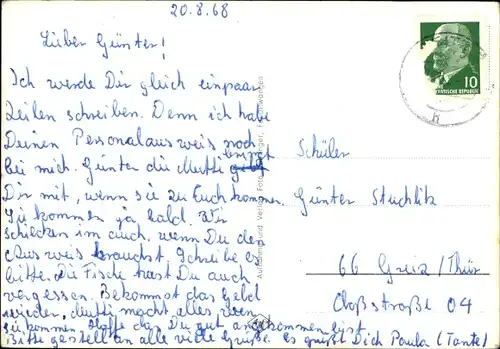 20.8.68
Lieber Günter!
Ich werde Dir gleich einpaar
Zeilen schreiben. Denn ich habe
Deinen Personalausweis noch
bei mich. Günter die Mutti bringt
Dir mit, wenn sie zu Euch kommen.
Sie kommen ja bald. Wir
schicken im auch. wenn Du den
Ausweis brauchst. Schreibe es
bitte. Die Fische hast Du auch
vergessen. Bekommst das Geld
wieder, Mutti macht alles wen
sie kommen. Hoffe das Du gut, angekommen bist.
Bitte gestell an alle viele Grüße. Es grüßt Dich Paula (Tante)
10
Schüler
Günter Stuchlik
66 Greiz/Thür
Cloßstraße 04